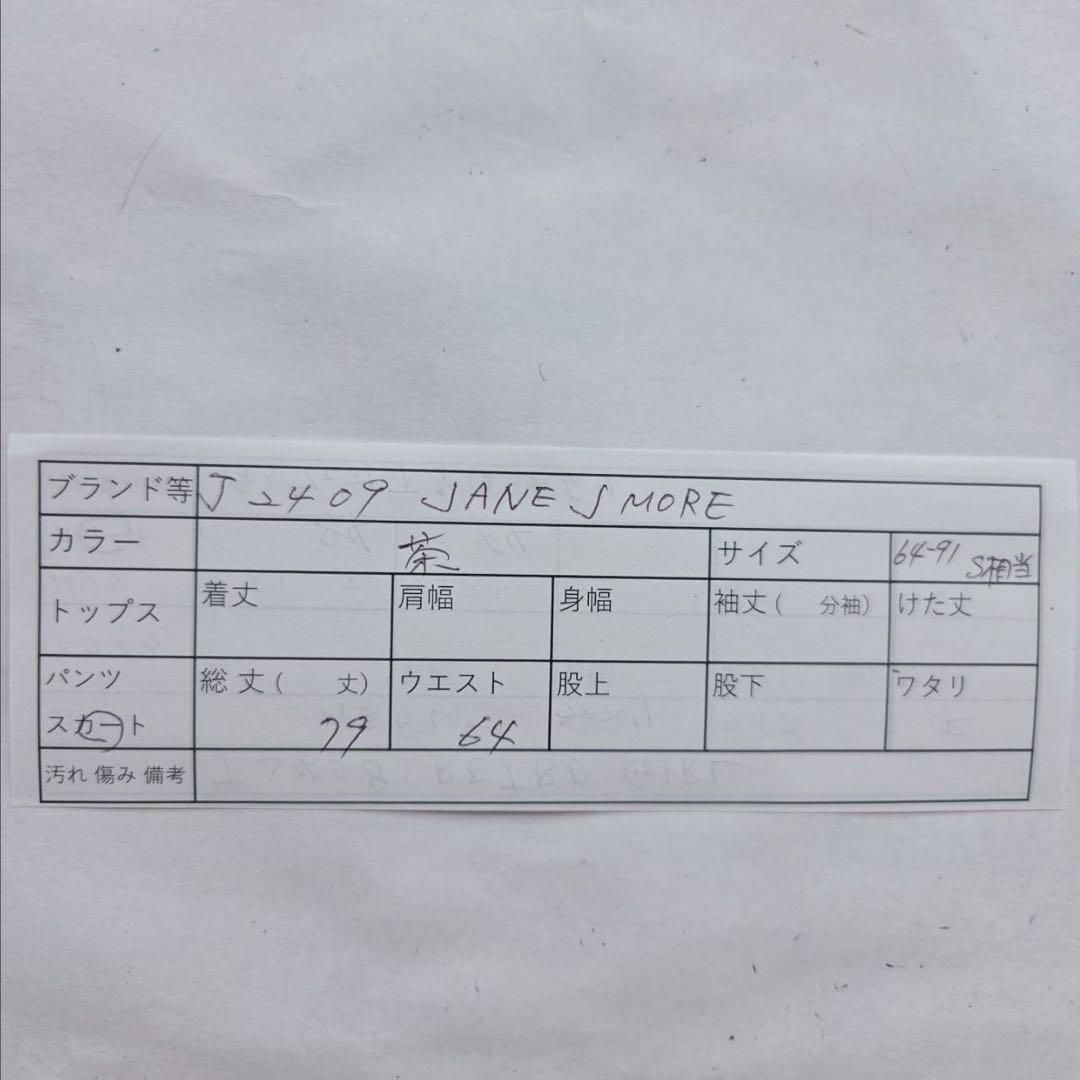 ブランド等 J2409 JANE SMORE
カラー 茶 サイズ 64-91 S相当
トップス 着丈 肩幅 身幅 袖丈( 分袖) けた丈
パンツ 総丈( 丈) ウエスト 股上 股下 ワタリ
スカート 79 64
汚れ 傷み 備考